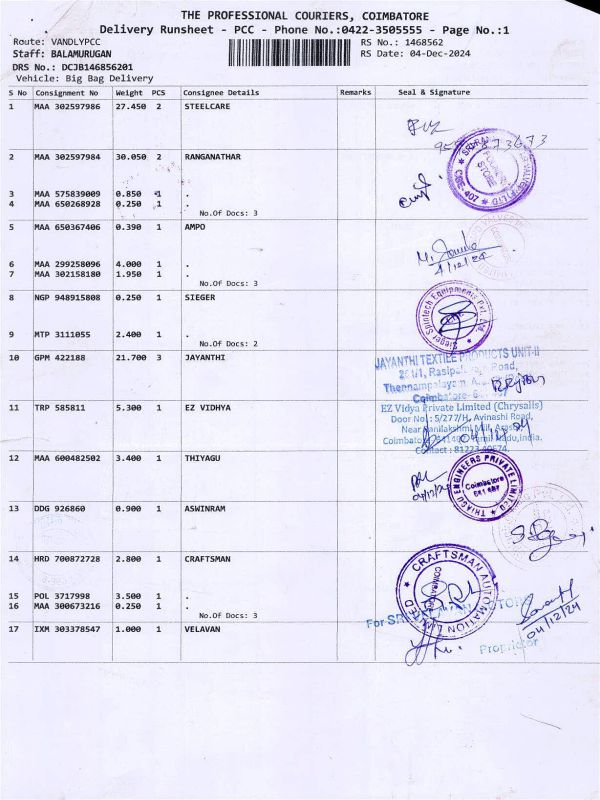 THE PROFESSIONAL COURIERS, COIMBATORE
Delivery Runsheet - PCC - Phone No.:0422-3505555 - Page No.:1
Route: VANDLYPCC
RS No.: 1468562
Staff: BALAMURUGAN
RS Date: 04-Dec-2024
DRS No.: DCJB146856201
Vehicle: Big Bag Delivery
S No Consignment No Weight PCS Consignee Details Remarks Seal & Signature
1 MAA 302597986 27.450 2 STEELCARE
2 MAA 302597984 30.050 2 RANGANATHAR
3 MAA 575839009 0.850 1 .
4 MAA 650268928 0.250 1 .
No.Of Docs: 3
5 MAA 650367406 0.390 1 AMPO
4/12/24
6 MAA 299258096 4.000 1 .
7 MAA 302158180 1.950 1 .
No.Of Docs: 3
8 NGP 948915808 0.250 1 SIEGER
Sieger Spintech Equipments Pvt. Ltd
9 MTP 3111055 2.400 1 .
No.Of Docs: 2
10 GPM 422188 21.700 3 JAYANTHI
JAYANTHI TEXTILE PRODUCTS UNIT-II
Road,
Thennampalayam
Coimbatore-
11 TRP 585811 5.300 1 EZ VIDHYA
EZ Vidya Private Limited (Chrysalis)
Door No.: 5/277/H, Avinashi Road,
Near
Coimbatore Tamil Nadu,india.
Contact :
12 MAA 600482502 3.400 1 THIYAGU
THIAGU ENGINEERS PRIVATE LIMITED
Coimbatore
641 407
04/12/24
13 DDG 926860 0.900 1 ASWINRAM
14 HRD 700872728 2.800 1 CRAFTSMAN
CRAFTSMAN AUTOMATION LIMITED
15 POL 3717998 3.500 1 .
16 MAA 300673216 0.250 1 .
No.Of Docs: 3
For SRI
04/12/24
17 IXM 303378547 1.000 1 VELAVAN
Proprietor